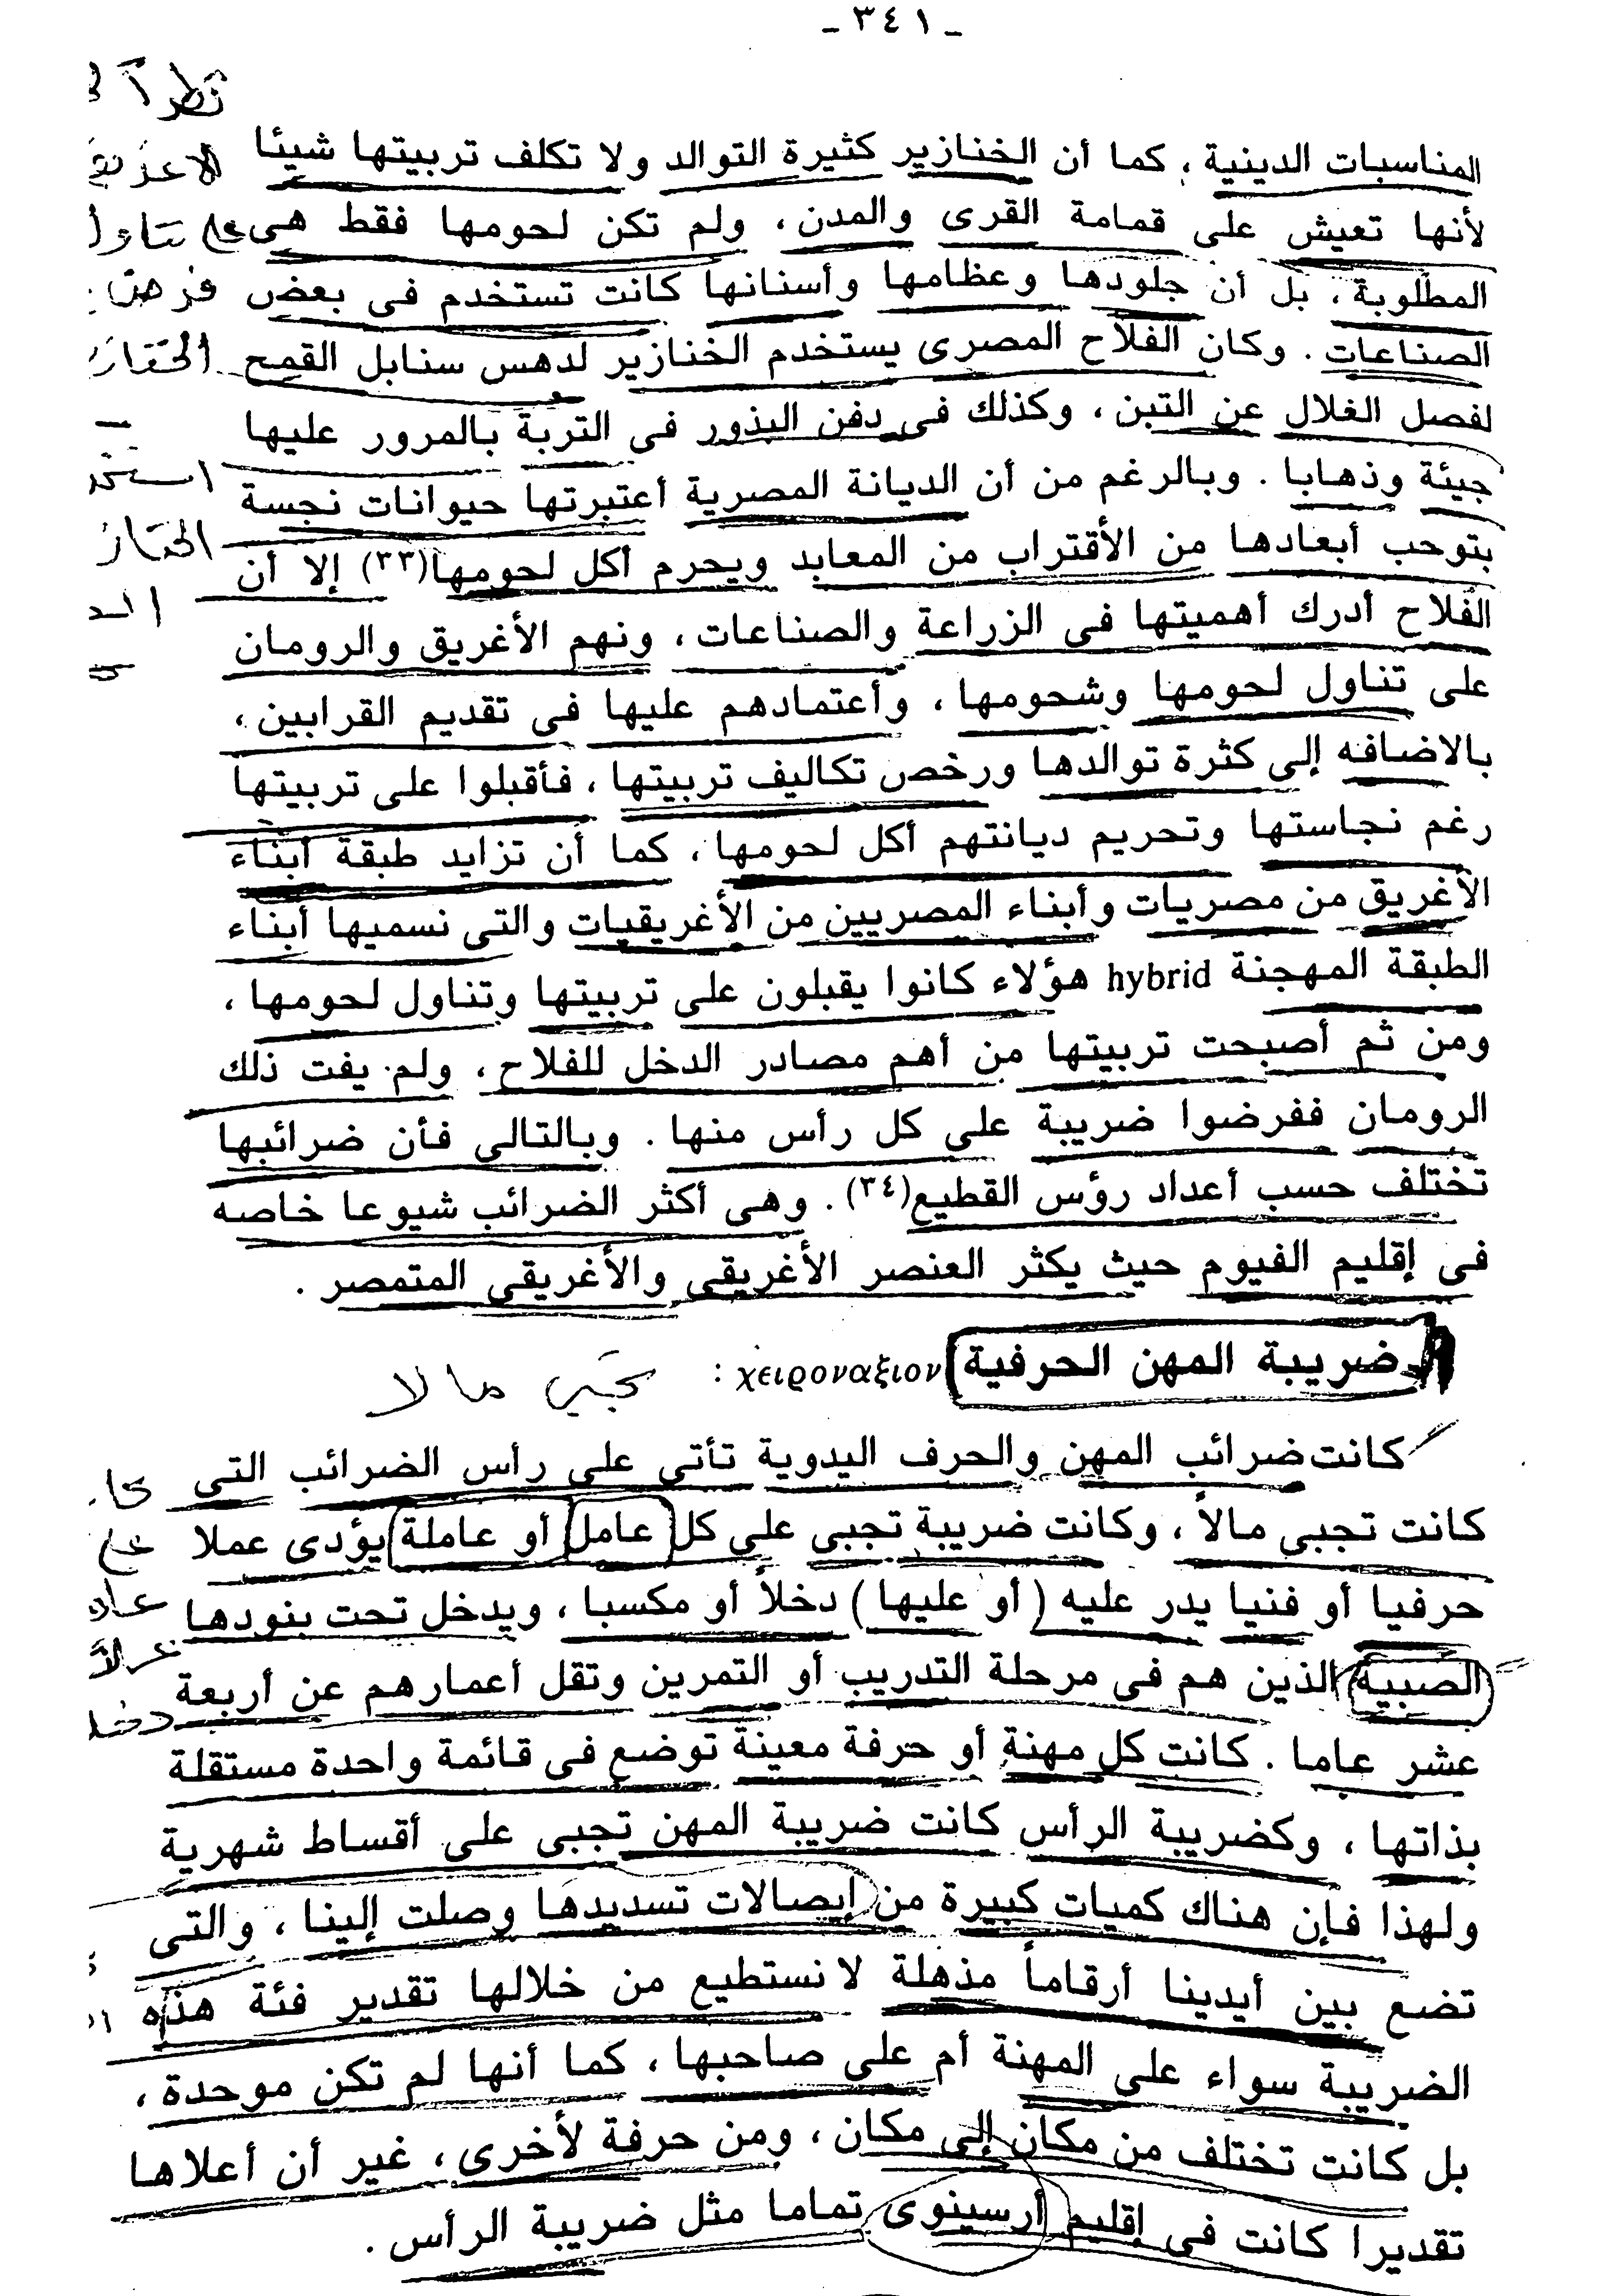 - ٣٤١ -
نظراً
المناسبات الدينية ، كما أن الخنازير كثيرة التوالد ولا تكلف تربيتها شيئا
لأنها تعيش على قمامة القرى والمدن ، ولم تكن لحومها فقط هى
المطلوبة ، بل أن جلودها وعظامها وأسنانها كانت تستخدم فى بعض
الصناعات . وكان الفلاح المصرى يستخدم الخنازير لدهس سنابل القمح
لفصل الغلال عن التبن ، وكذلك فى دفن البذور فى التربة بالمرور عليها
جيئة وذهابا . وبالرغم من أن الديانة المصرية أعتبرتها حيوانات نجسة
بتوحب أبعادها من الأقتراب من المعابد ويحرم أكل لحومها(٣٣) إلا أن
الفلاح أدرك أهميتها فى الزراعة والصناعات ، ونهم الأغريق والرومان
على تناول لحومها وشحومها ، وأعتمادهم عليها فى تقديم القرابين ،
بالاضافه إلى كثرة توالدها ورخص تكاليف تربيتها ، فأقبلوا على تربيتها
رغم نجاستها وتحريم ديانتهم أكل لحومها ، كما أن تزايد طبقة أبناء
الأغريق من مصريات وأبناء المصريين من الأغريقيات والتى نسميها أبناء
الطبقة المهجنة hybrid هؤلاء كانوا يقبلون على تربيتها وتناول لحومها ،
ومن ثم أصبحت تربيتها من أهم مصادر الدخل للفلاح ، ولم يفت ذلك
الرومان ففرضوا ضريبة على كل رأس منها . وبالتالى فأن ضرائبها
تختلف حسب أعداد رؤس القطيع(٣٤) . وهى أكثر الضرائب شيوعا خاصه
فى إقليم الفيوم حيث يكثر العنصر الأغريقى والأغريقى المتمصر .
ضريبة المهن الحرفية χειροναξιον : تجبى مالا
كانت ضرائب المهن والحرف اليدوية تأتى على رأس الضرائب التى
كانت تجبى مالاً ، وكانت ضريبة تجبى على كل عامل أو عاملة يؤدى عملا
حرفيا أو فنيا يدر عليه (أو عليها) دخلاً أو مكسبا ، ويدخل تحت بنودها
الصبية الذين هم فى مرحلة التدريب أو التمرين وتقل أعمارهم عن أربعة
عشر عاما . كانت كل مهنة أو حرفة معينة توضع فى قائمة واحدة مستقلة
بذاتها ، وكضريبة الرأس كانت ضريبة المهن تجبى على أقساط شهرية
ولهذا فإن هناك كميات كبيرة من إيصالات تسديدها وصلت إلينا ، والتى
تضع بين أيدينا أرقاماً مذهلة لا نستطيع من خلالها تقدير فئة هذه
الضريبة سواء على المهنة أم على صاحبها ، كما أنها لم تكن موحدة ،
بل كانت تختلف من مكان إلى مكان ، ومن حرفة لأخرى ، غير أن أعلاها
تقديرا كانت فى إقليم أرسينوى تماما مثل ضريبة الرأس .